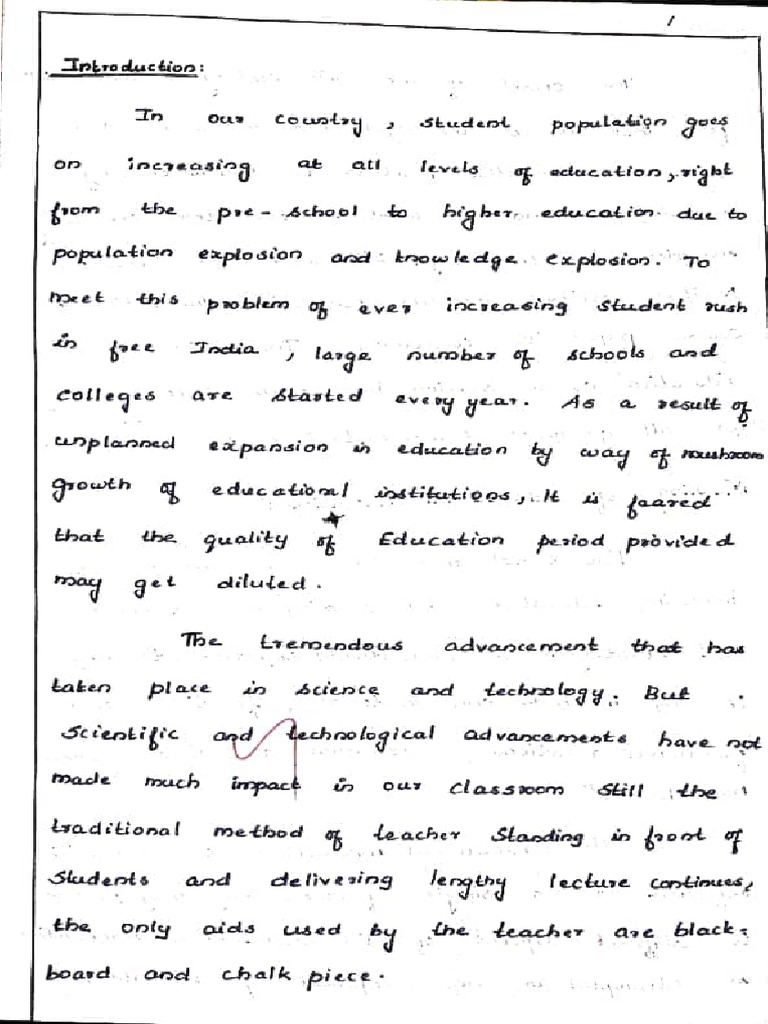 1
Introduction:
In our country, student population goes
on increasing at all levels of education, right
from the pre-school to higher education due to
population explosion and knowledge explosion. To
meet this problem of ever increasing student rush
in free India, large number of schools and
colleges are started every year. As a result of
unplanned expansion in education by way of mushroom
growth of educational institutions, It is feared
that the quality of Education period provided
may get diluted.
The tremendous advancement that has
taken place in science and technology. But
Scientific and technological advancements have not
made much impact in our classroom still the
traditional method of teacher standing in front of
students and delivering lengthy lecture continues,
the only aids used by the teacher are black-
board and chalk piece.